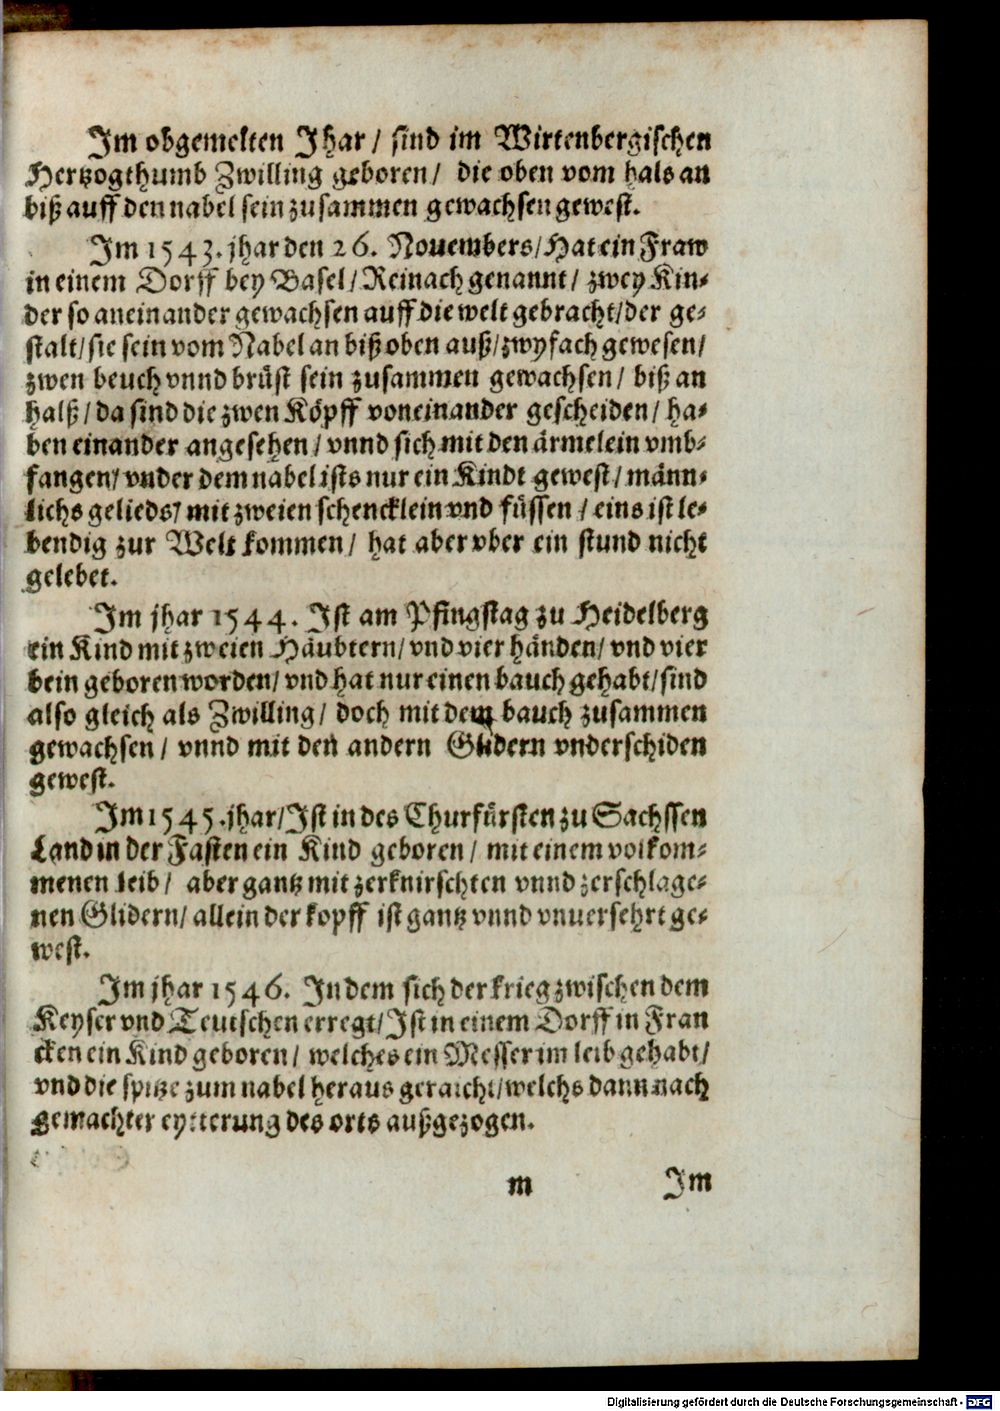 Im obgemelten Jhar / sind im Wirtenbergischen
Hertzogthumb Zwilling geboren / die oben vom hals an
biß auff den nabel sein zusammen gewachsen gewest.
Im 1543. jhar den 26. Nouembers / Hat ein Fraw
in einem Dorff bey Basel / Reinach genannt / zwey Kin-
der so aneinander gewachsen auff die welt gebracht / der ge-
stalt / sie sein vom Nabel an biß oben auß / zwyfach gewesen /
zwen beuch vnnd brüst sein zusammen gewachsen / biß an
halß / da sind die zwen Köpff voneinander gescheiden / ha-
ben einander angesehen / vnnd sich mit den ärmelein vmb-
fangen / vnder dem nabel ists nur ein Kindt gewest / männ-
lichs gelieds / mit zweien schencklein vnd füssen / eins ist le-
bendig zur Welt kommen / hat aber vber ein stund nicht
gelebet.
Im jhar 1544. Ist am Pfingstag zu Heidelberg
ein Kind mit zweien Häubtern / vnd vier händen / vnd vier
bein geboren worden / vnd hat nur einen bauch gehabt / sind
also gleich als Zwilling / doch mit dem bauch zusammen
gewachsen / vnnd mit den andern Glidern vnderschiden
gewest.
Im 1545. jhar / Ist in des Churfürsten zu Sachssen
Land in der Fasten ein Kind geboren / mit einem volkom-
menen leib / aber gantz mit zerknirschten vnnd zerschlage-
nen Glidern / allein der kopff ist gantz vnnd vnuersehrt ge-
west.
Im jhar 1546. In dem sich der krieg zwischen dem
Keyser vnd Teutschen erregt / Ist in einem Dorff in Fran
cken ein Kind geboren / welches ein Messer im leib gehabt /
vnd die spitze zum nabel heraus geraicht / welchs dann nach
gemachter eytterung des orts außgezogen.
m Im
Digitalisierung gefördert durch die Deutsche Forschungsgemeinschaft - DFG